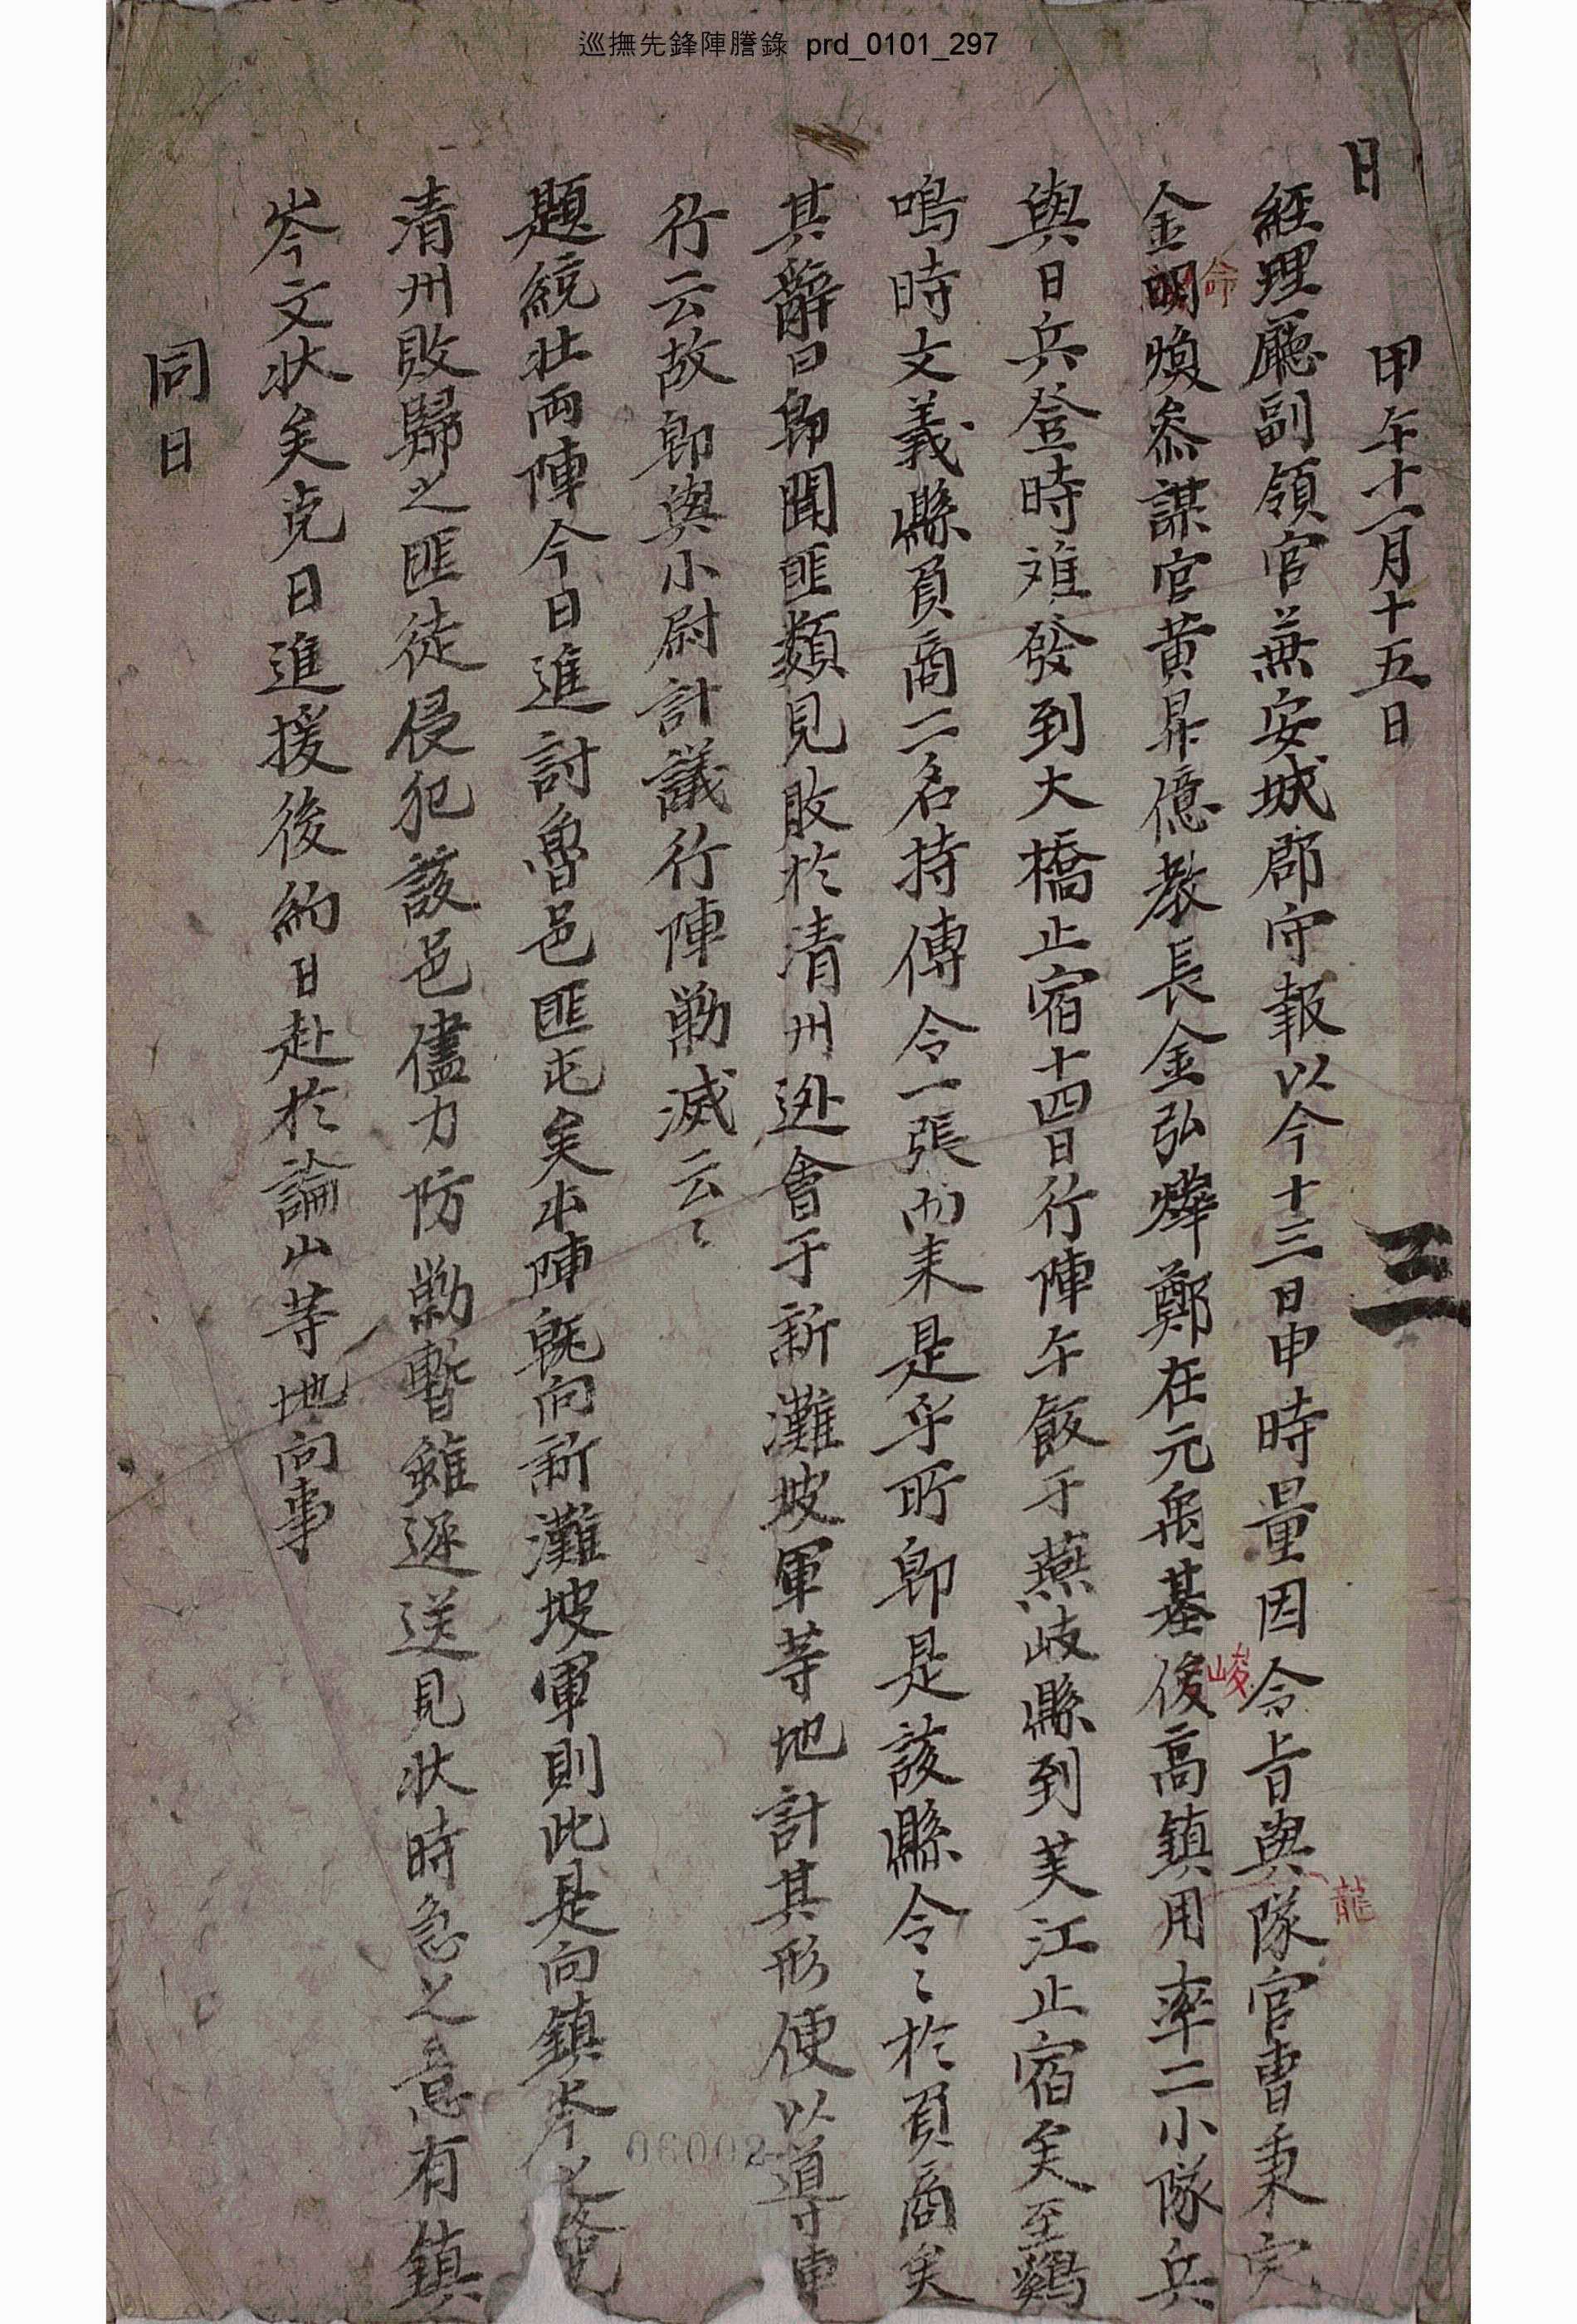 巡撫先鋒陣謄錄 prd_0101_297
日
甲午十一月十五日
三
經理廳副領官兼安城郡守報以今十三日申時量因令旨與隊官曺秉完
龍
金明煥叅謀官黃昇億敎長金弘燁鄭在元禹基俊高鎭用率二小隊兵
命
峻
與日兵登時難發到大橋止宿十四日行陣午飯于燕岐縣到芙江止宿矣至鷄
鳴時文義縣負商二名持傳令一張內來是乎所卽是該縣令〻於負商矣
其辭曰卽聞匪類見敗於淸州逃會于新灘坡軍等地計其形便以導
行云故卽與小尉計議行陣勦滅云〻
題統壯兩陣今日進討魯邑匪屯矣本陣旣向新灘坡軍則此是向鎭岑之路
淸州敗歸之匪徒侵犯該邑儘力防勦暫雖逐送見狀時急之意有鎭
岑文狀矣克日進援後約日赴於論山等地向事
同日
06002